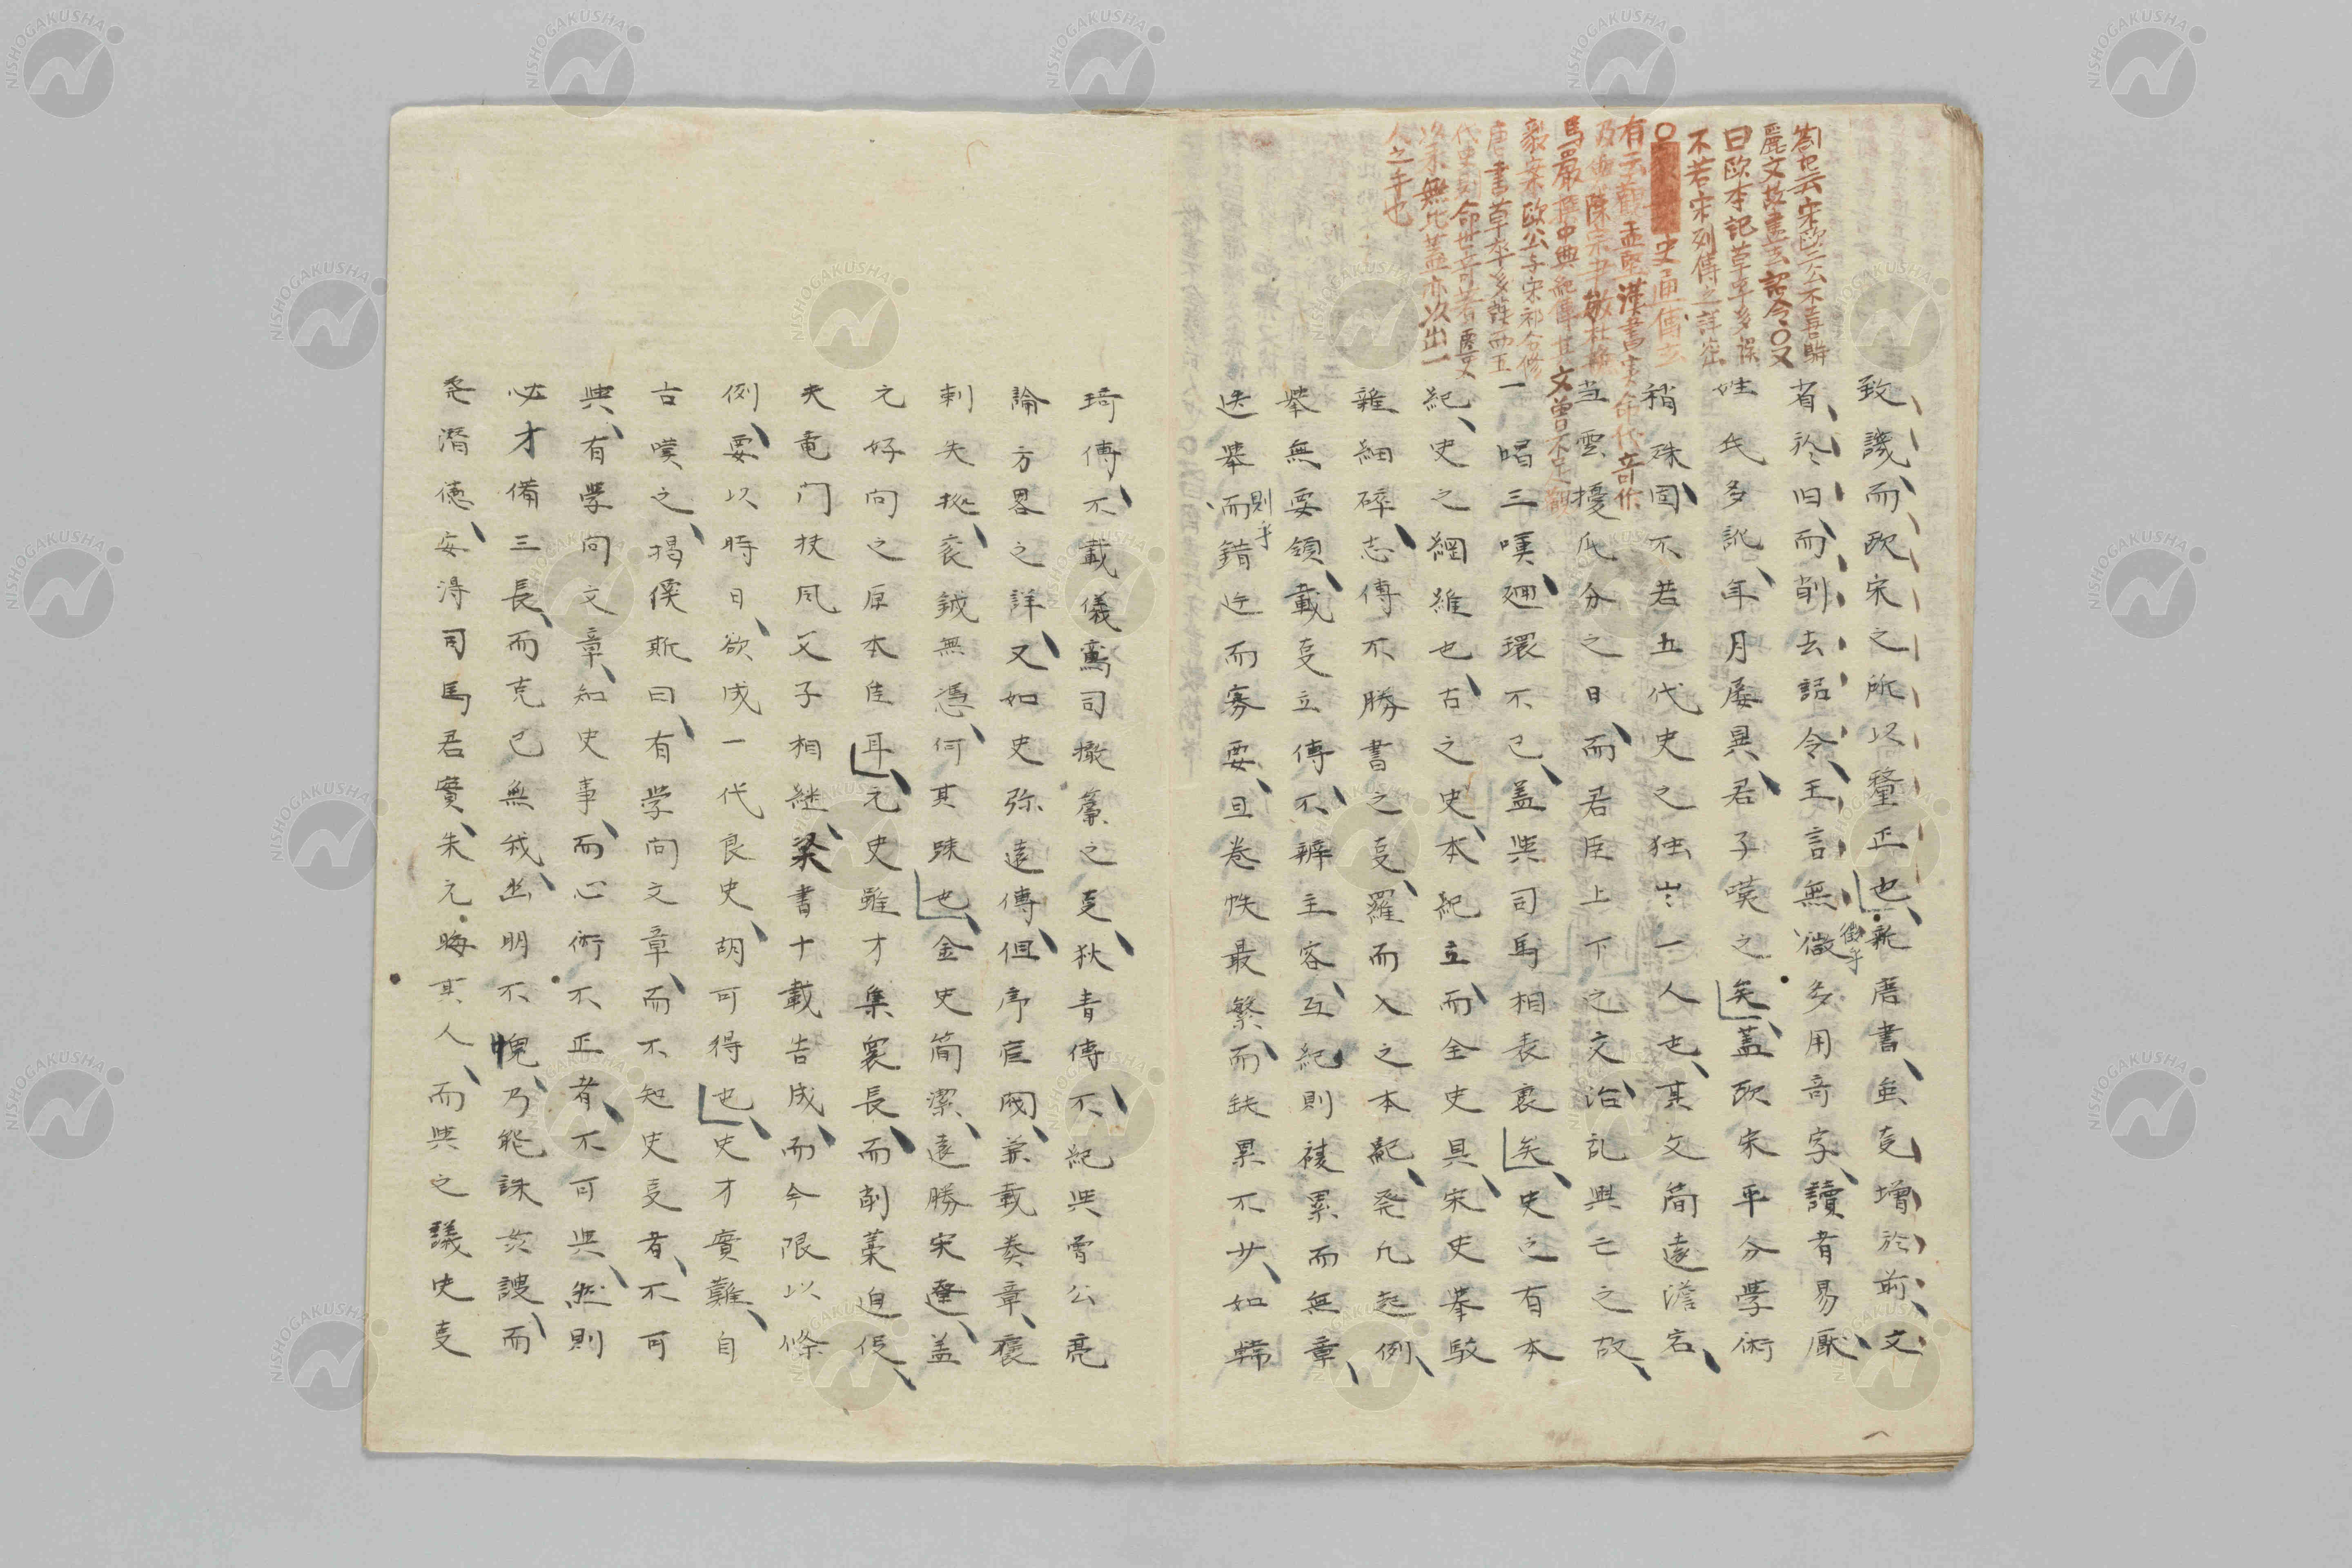 致議而欧宋之所以釐正也新唐書虽叓增於前文
省於旧而削去詔令王言無徴多用奇字讀者易厭
姓氏多訛年月屡異君子嘆之矣蓋欧宋平分學術
稍殊固不若五代史之独出一人也其文簡遠澹宕
当雲擾瓜分之日而君臣上下之交治乱興亡之故
一唱三嘆廻環不已盖與司馬相表裏矣史之有本
紀史之綱維也古之史本紀立而全史具宋史挙駁
雜細碎志傳不勝書之叓羅而入之本紀発凡起例
挙無要領載叓立傳不辨主客互紀則複累而無章
迭挙而錯迕而寡要且巻帙最繁而缺累不少如韓
則乎
徴乎
琦傳不載儀鸞司撤簾之叓狄青傳不紀與曾公亮
論方畧之詳又如史弥遠傳但序官閥兼載奏章褒
刺失㧞衮鉞無憑何其踈也金史簡潔遠勝宋遼盖
元好问之原本佳耳元史雖才集衆長而削藁迫促
夫竜门扶风父子相継梁書十載告成而今限以條
例要以時日欲成一代良史胡可得也史才實難自
古嘆之揭傒斯曰有学问文章而不知史叓者不可
與有學问文章知史事而心術不正者不可與然則
必才備三長而克己無我幽明不愧乃能誅姦諛而
発潜德安淂司馬君實朱元晦其人而與之議史叓
劉元城云宋欧二公不喜駢
麗文故盡去詔令○又
曰欧本記草率多誤
不若宋列傳之詳密
○史通
有云観孟堅漢書実命代奇作
及與陳宗尹敏杜撫
馬嚴撰中興紀傳其文曽不足観
毅案欧公与宋祁合修
唐書草率多謬而五
代史則命世奇著慶文
次未無比蓋亦以出一
人之手也
NISHOGAKUSHA